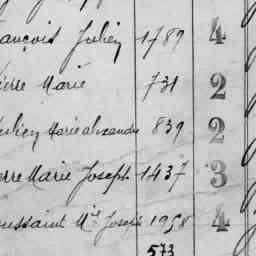 ançois Julien 1789 4
ierre Marie 731 2
Julien Marie Alexandre 839 2
erre Marie Joseph 1437 3
oussaint Mie Joseph 1958 4
573